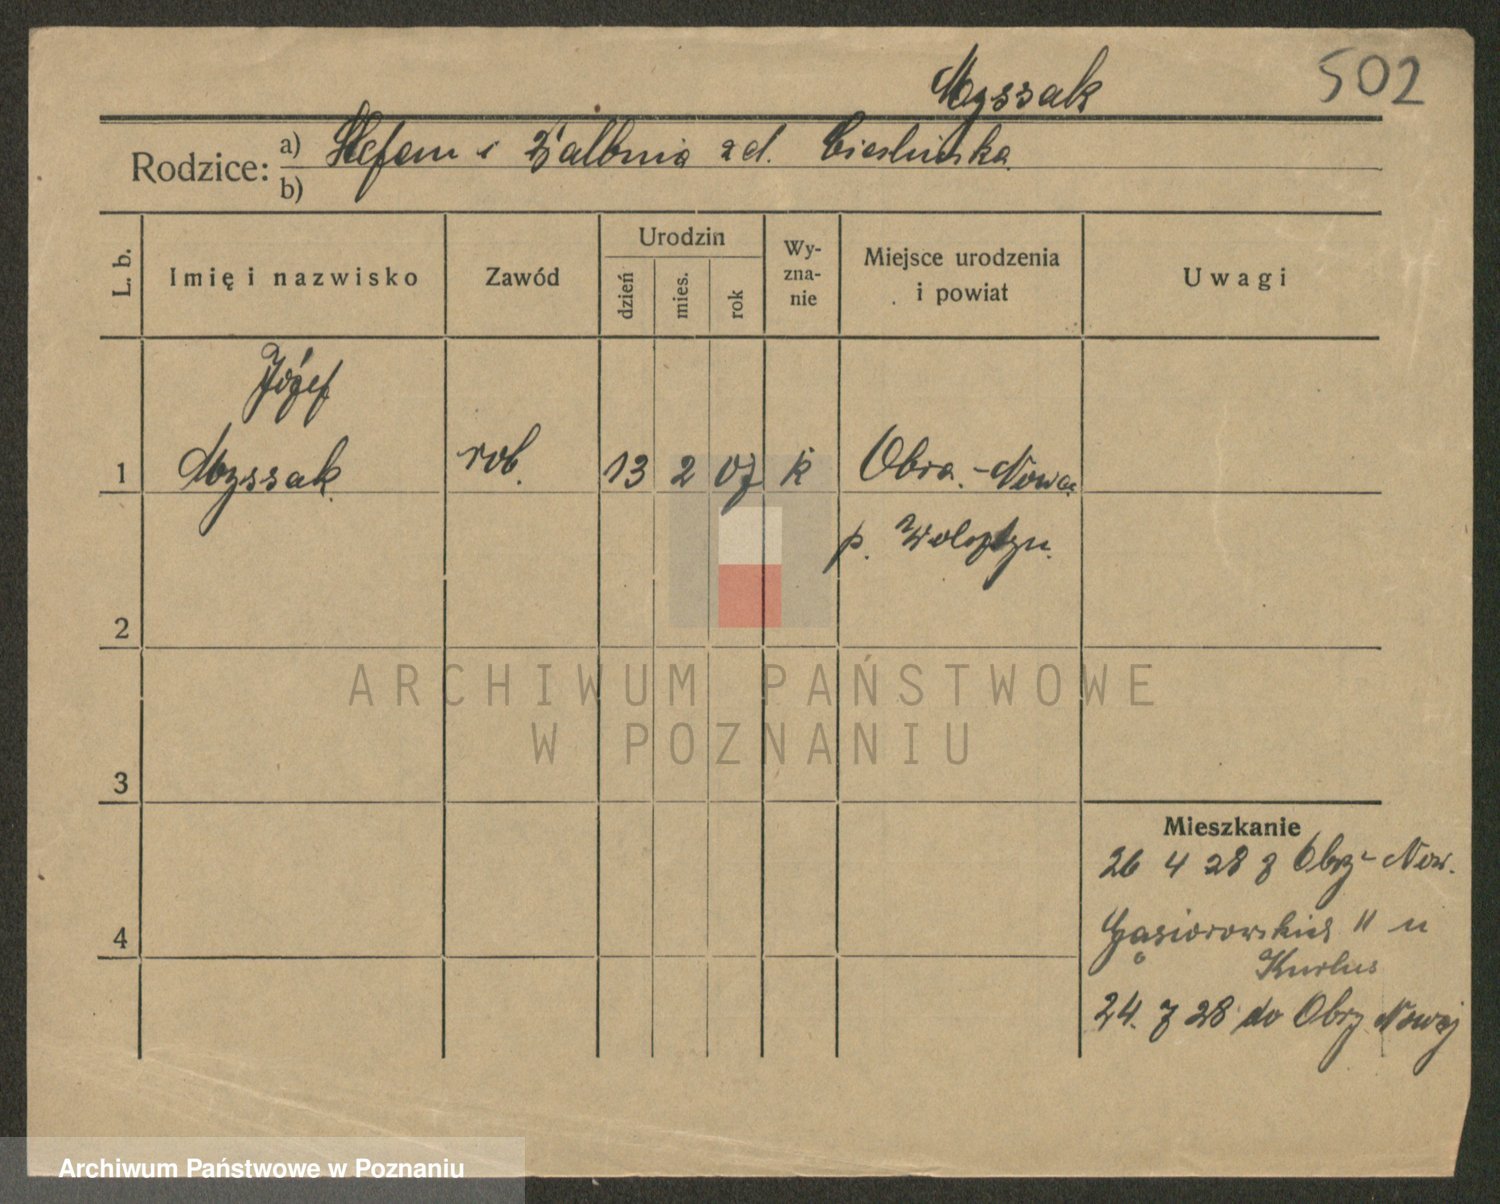 Myssak
502
Rodzice: a) Stefan i Walbnia zd. Cieslinska
b)
L. b.
Imię i nazwisko
Zawód
Urodzin
dzień
mies.
rok
Wy-
zna-
nie
Miejsce urodzenia
i powiat
Uwagi
Józef
1 Myssak rob. 13 2 07 k Obra-Nowa
p. Wolsztyn.
2
3
4
Mieszkanie
26 4 28 z Obry Now.
Gąsiorowskich 11 u
24. 7 28 do Obry Nowej
ARCHIWUM PAŃSTWOWE
W POZNANIU
Archiwum Państwowe w Poznaniu